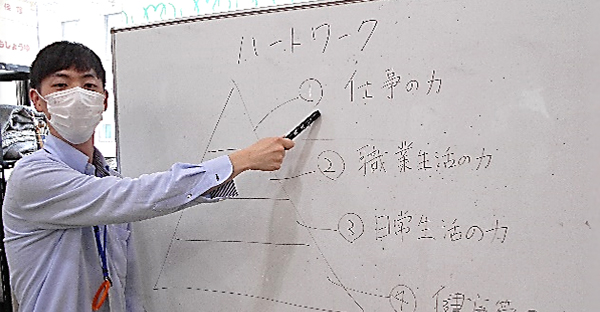 ハートワーク
① 仕事の力
② 職業生活の力
③ 日常生活の力
④ 健康